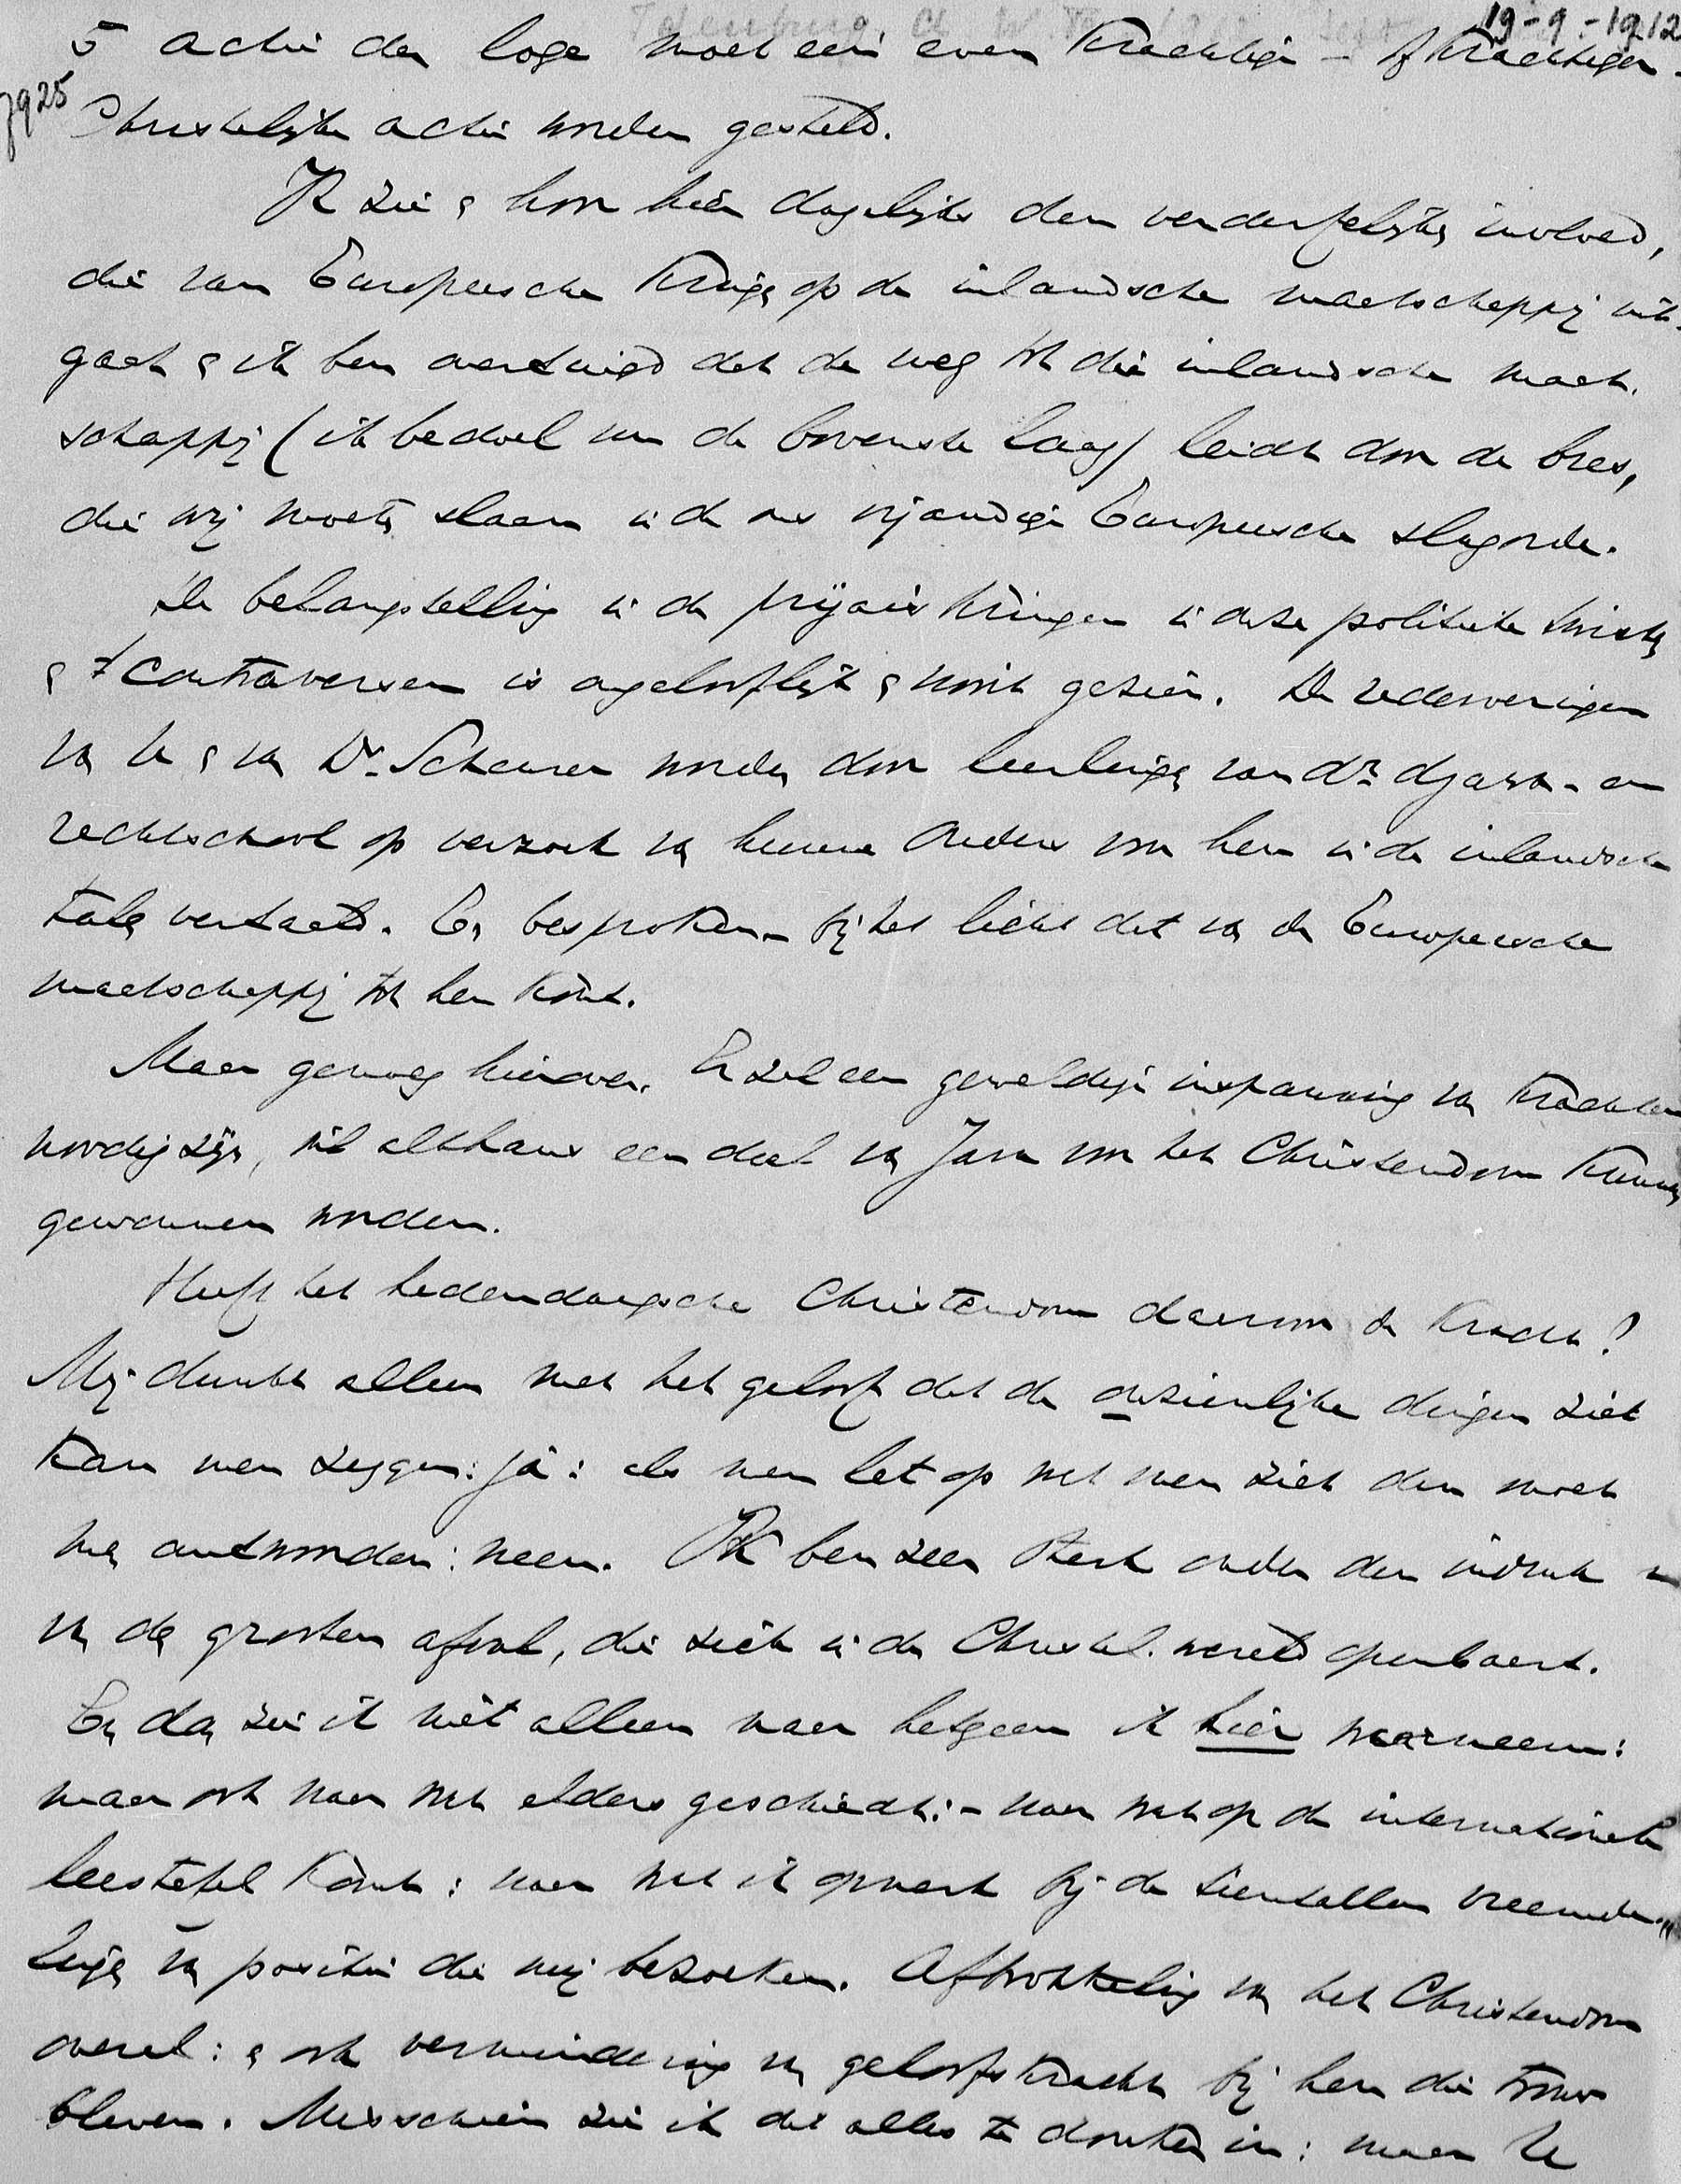 19-9-1912
5 actie der loge moet een even krachtige – of krachtiger –
7925
Christelijke actie worden gesteld.
Ik zie & hoor hier dagelijks den verderfelijks invloed,
die van Europeesche kringe op de inlandsche maatschappij uit-
gaat & ik ben overtuigd dat de weg tot die inlandsche maat-
schappij (ik bedoel nu de bovenste laag) leidt door de bres,
die wij moete slaan in de ons vijandige Europeesche slagorde.
De belangstelling in de prijaie kringen in onze politieke twiste
& controversen is ongelooflijk & nooit gezien. De redevoeringen
va U & va Dr. Scheurer worde door leerlinge van dr. djawa- en
rechtschool op verzoek va hunne ouders voor hen in de inlandsche
tale vertaald. En besproken – bij het licht dat va de Europeesche
maatschappij tot hen komt.
Maar genoeg hierover. Er zal een geweldige inspanning va krachten
noodig zijn, wil althans een deel va Java voor het Christendom kunne
gewonnen worden.
Heeft het hedendaagsche Christendom daarvoor de kracht?
Mij dunkt alleen met het geloof dat de onzienlijke dingen ziet
kan men zeggen: ja: als men let op wat men ziet dan moet
me antwoorden: neen. Ik ben zeer sterk onder den indruk
va de grooten afval, die zich in de Christel. wereld openbaart.
En da zie ik niet alleen naar hetgeen ik hier waarneem:
maar ook naar wat elders geschiedt: – naar wat op de internationale
leestafel komt: naar wat ik opmerk bij de tientallen vreemde-
linge va positie die mij bezoeken. Afbrokkeling va het Christendom
overal: & ook vermindering va geloofskracht bij hen die trouw
bleven. Misschien zie ik dat alles te donker in: maar U